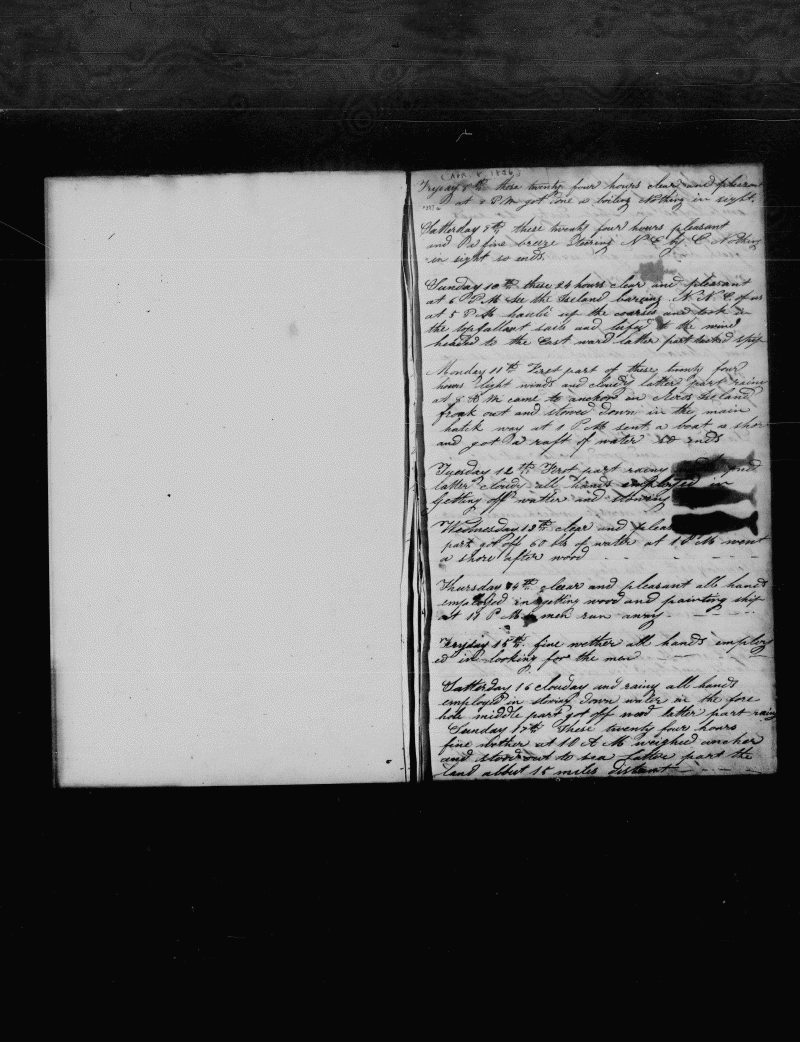 (Apr. 8 1836)
Fryday 8th these twenty four hours clear and pleasant
at P M got one a boiling Nothing in sight
Satterday 9th these twenty four hours pleasant
and a fine breeze Steering N E by E Nothing
in sight so ends
Sunday 10th these 24 hours clear and pleasant
at 6 P M see the Iseland bareing N. N. E. of us
at 5 P M hauld up the courses and took in
the topfallant sails and lufed to the wind
headed to the East ward latter part tacked ship
Monday 11th First part of these twenty four
hours light winds and cloudy latter part raine
at 8 A M came to anchor in Iseland
broak out and stowed down in the main
hatch way at 1 P M sent a boat a shore
and got a raft of water So ends
Tuesday 12th First part rainy
latter cloudy all hands employed in
Getting off watter and stowing
Wednesday 13th clear and pleas
part got off 60 bls of water at 1 P M went
a shore after wood
Thursday 14th clear and pleasant all hands
employed in getting wood and painting ship
at 11 P M men run away
Fryday 15th. fine wether all hands employ
ed in looking for the men
Satterday 16 clouday and rainy all hands
employd in stowing down water in the fore
hole middle part got off wood latter part rainy
Sunday 17th These twenty four hours
fine wether at 10 A M weighed ancher
and stood out to sea latter part the
land about 15 miles distant